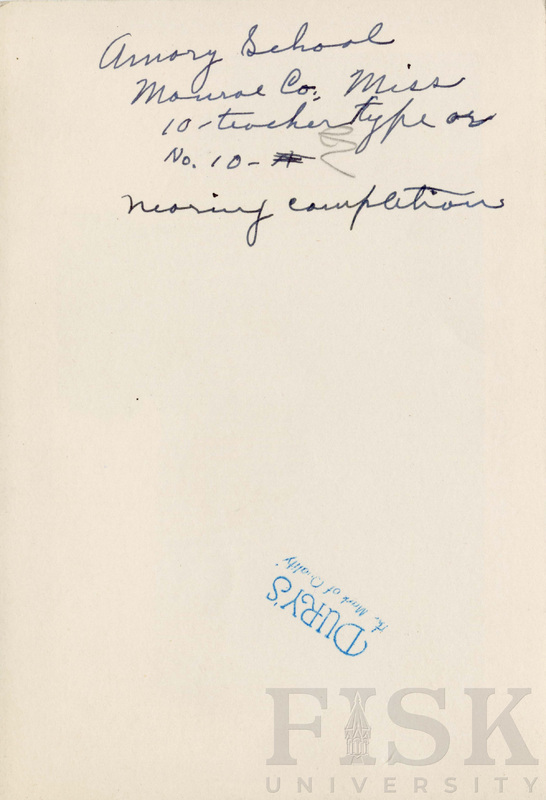 Amory School
Monroe Co., Miss
10-teacher type or
No. 10-
nearing completion
DURY'S
The Mark of Quality
FISK
UNIVERSITY